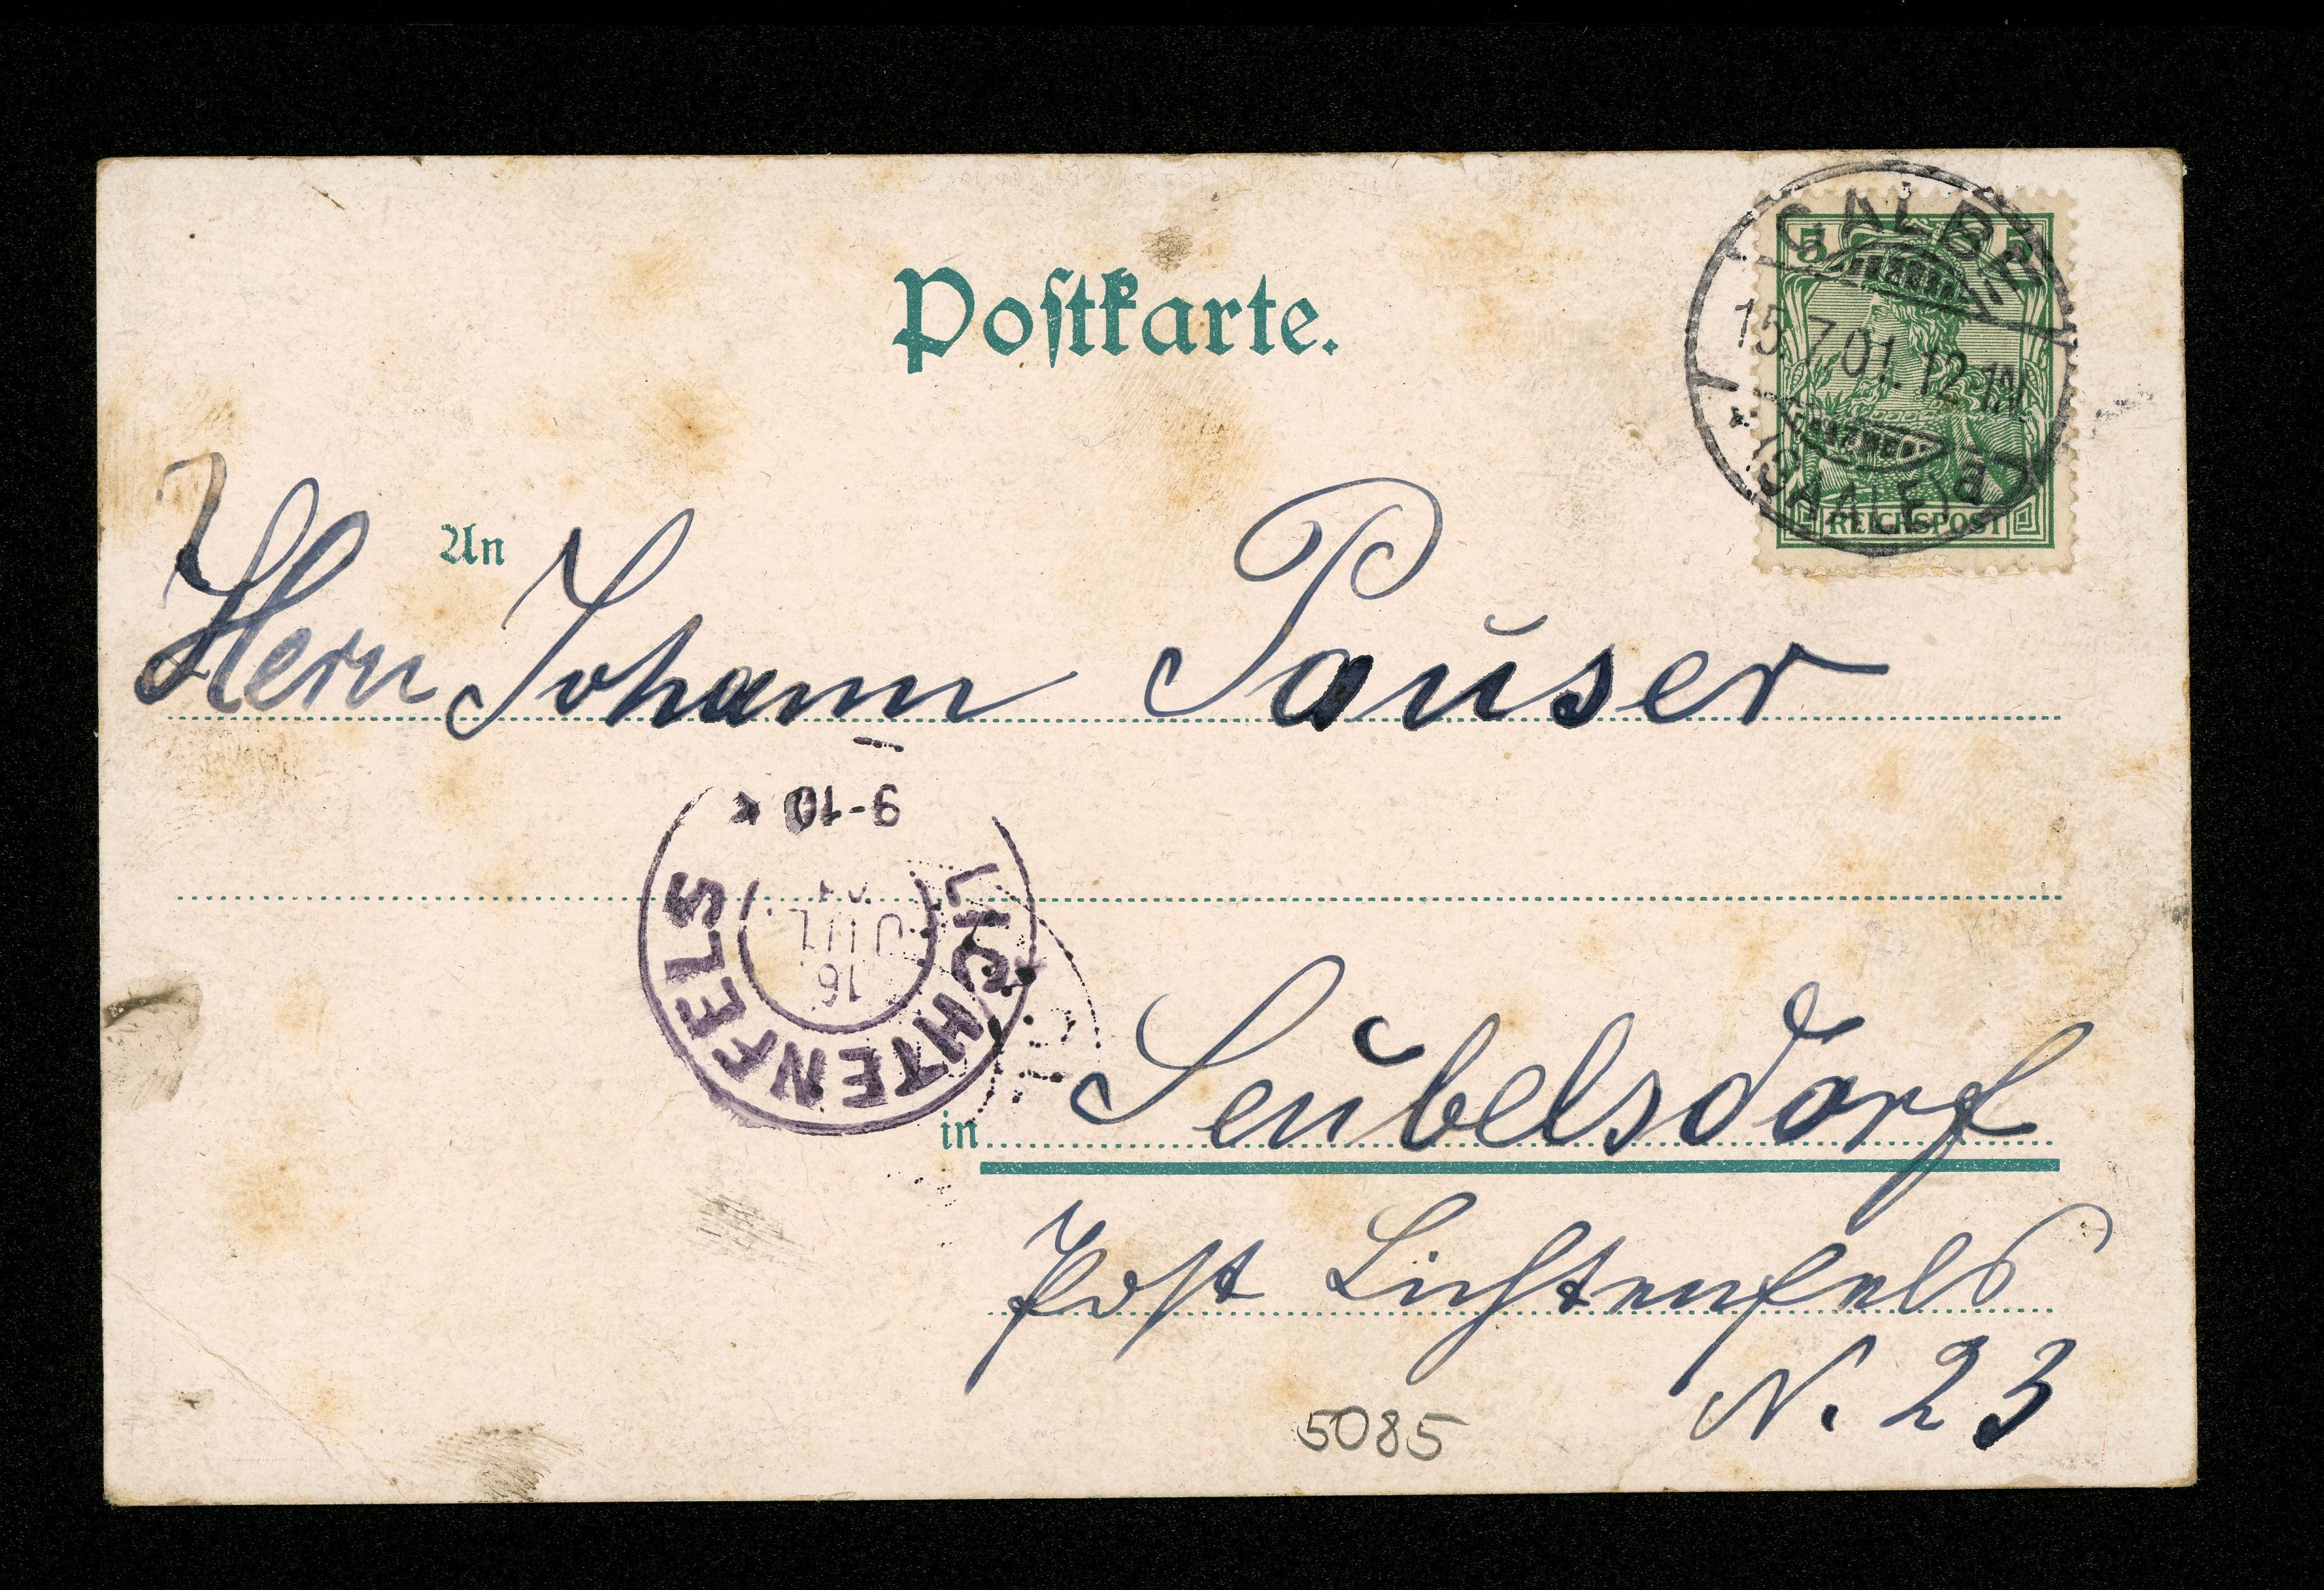 Postkarte.
5 5
REICHSPOST
CALBE
15.7.01.12-1N.
* (SAALE) B
An
Herrn Johann Pauser
9-10
LICHTENFELS
16
JUL
01
in Seubelsdorf
Post Lichtenfels
N. 23
5085